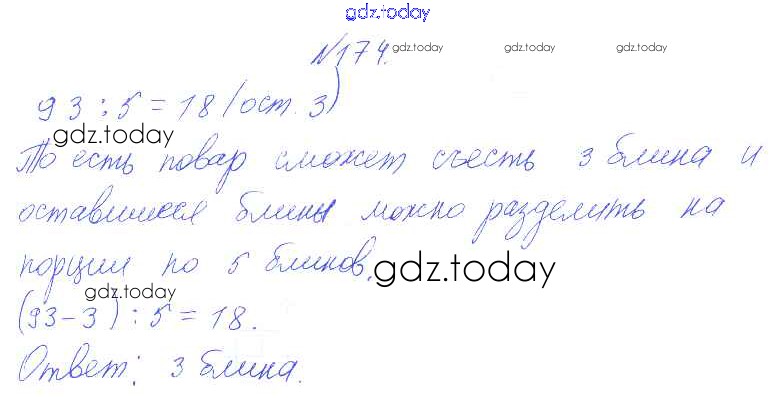 gdz.today
№174. gdz.today gdz.today gdz.today
93 : 5 = 18 (ост. 3)
gdz.today
То есть повар сможет съесть 3 блина и
оставшиеся блины можно разделить на
порции по 5 блинов. gdz.today
gdz.today
(93-3) : 5 = 18.
Ответ: 3 блина.